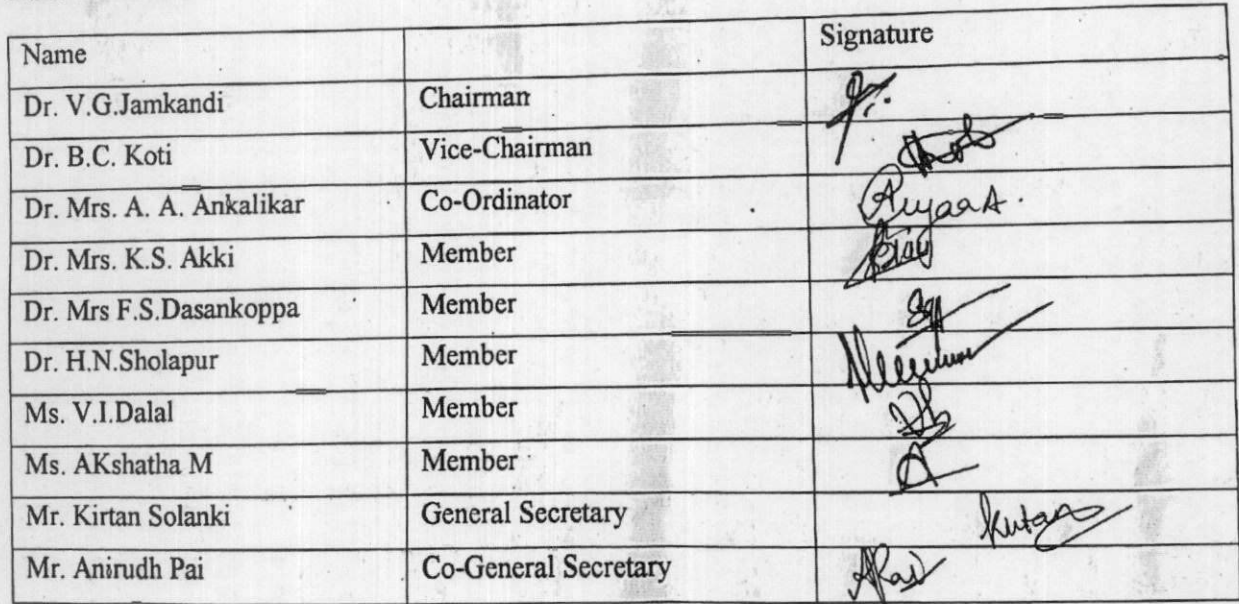 Name Signature
Dr. V.G.Jamkandi Chairman
Dr. B.C. Koti Vice-Chairman
Dr. Mrs. A. A. Ankalikar Co-Ordinator
Dr. Mrs. K.S. Akki Member
Dr. Mrs F.S.Dasankoppa Member
Dr. H.N.Sholapur Member
Ms. V.I.Dalal Member
Ms. AKshatha M Member
Mr. Kirtan Solanki General Secretary
Mr. Anirudh Pai Co-General Secretary